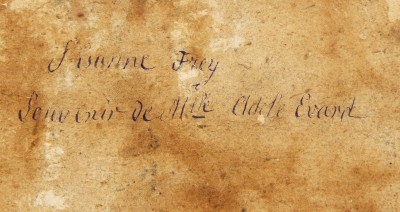 Susanne Frey
Souvenir de Mlle Adèle Evard